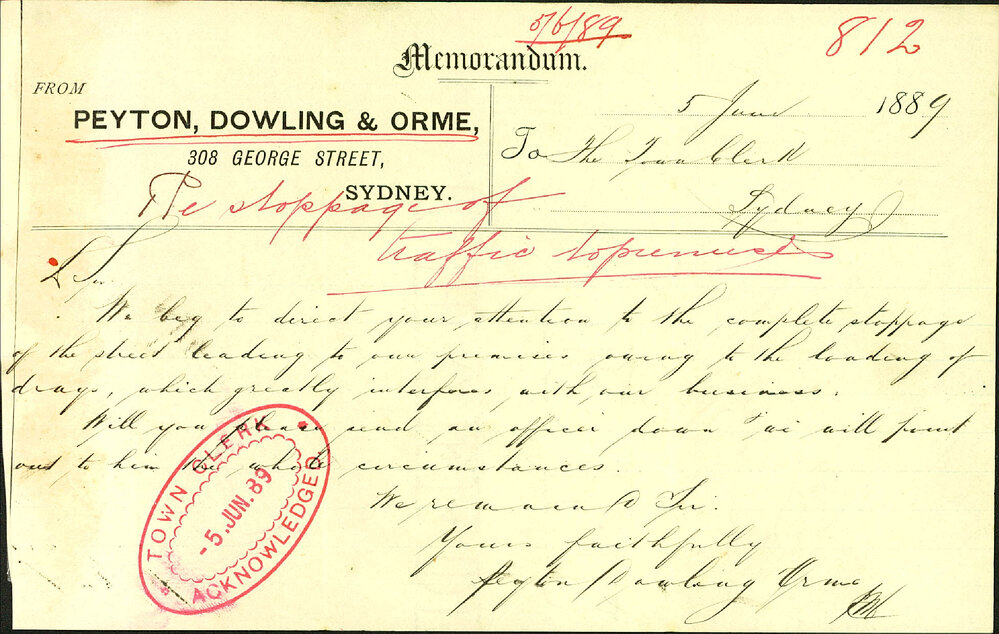 5/6/89
812
Memorandum.
FROM
PEYTON, DOWLING & ORME,
308 GEORGE STREET,
SYDNEY.
5 June 1889
To The Town Clerk
Sydney
Re stoppage of
traffic to premises
D Sir.
We beg to direct your attention to the complete stoppage
of the street leading to our premises owing to the loading of
drays, which greatly interferes with our business.
Will you please send an officer down & we will point
out to him the whole circumstances.
We remain D Sir.
Yours faithfully
Peyton Dowling Orme
TOWN CLERK
-5. JUN. 89
ACKNOWLEDGED